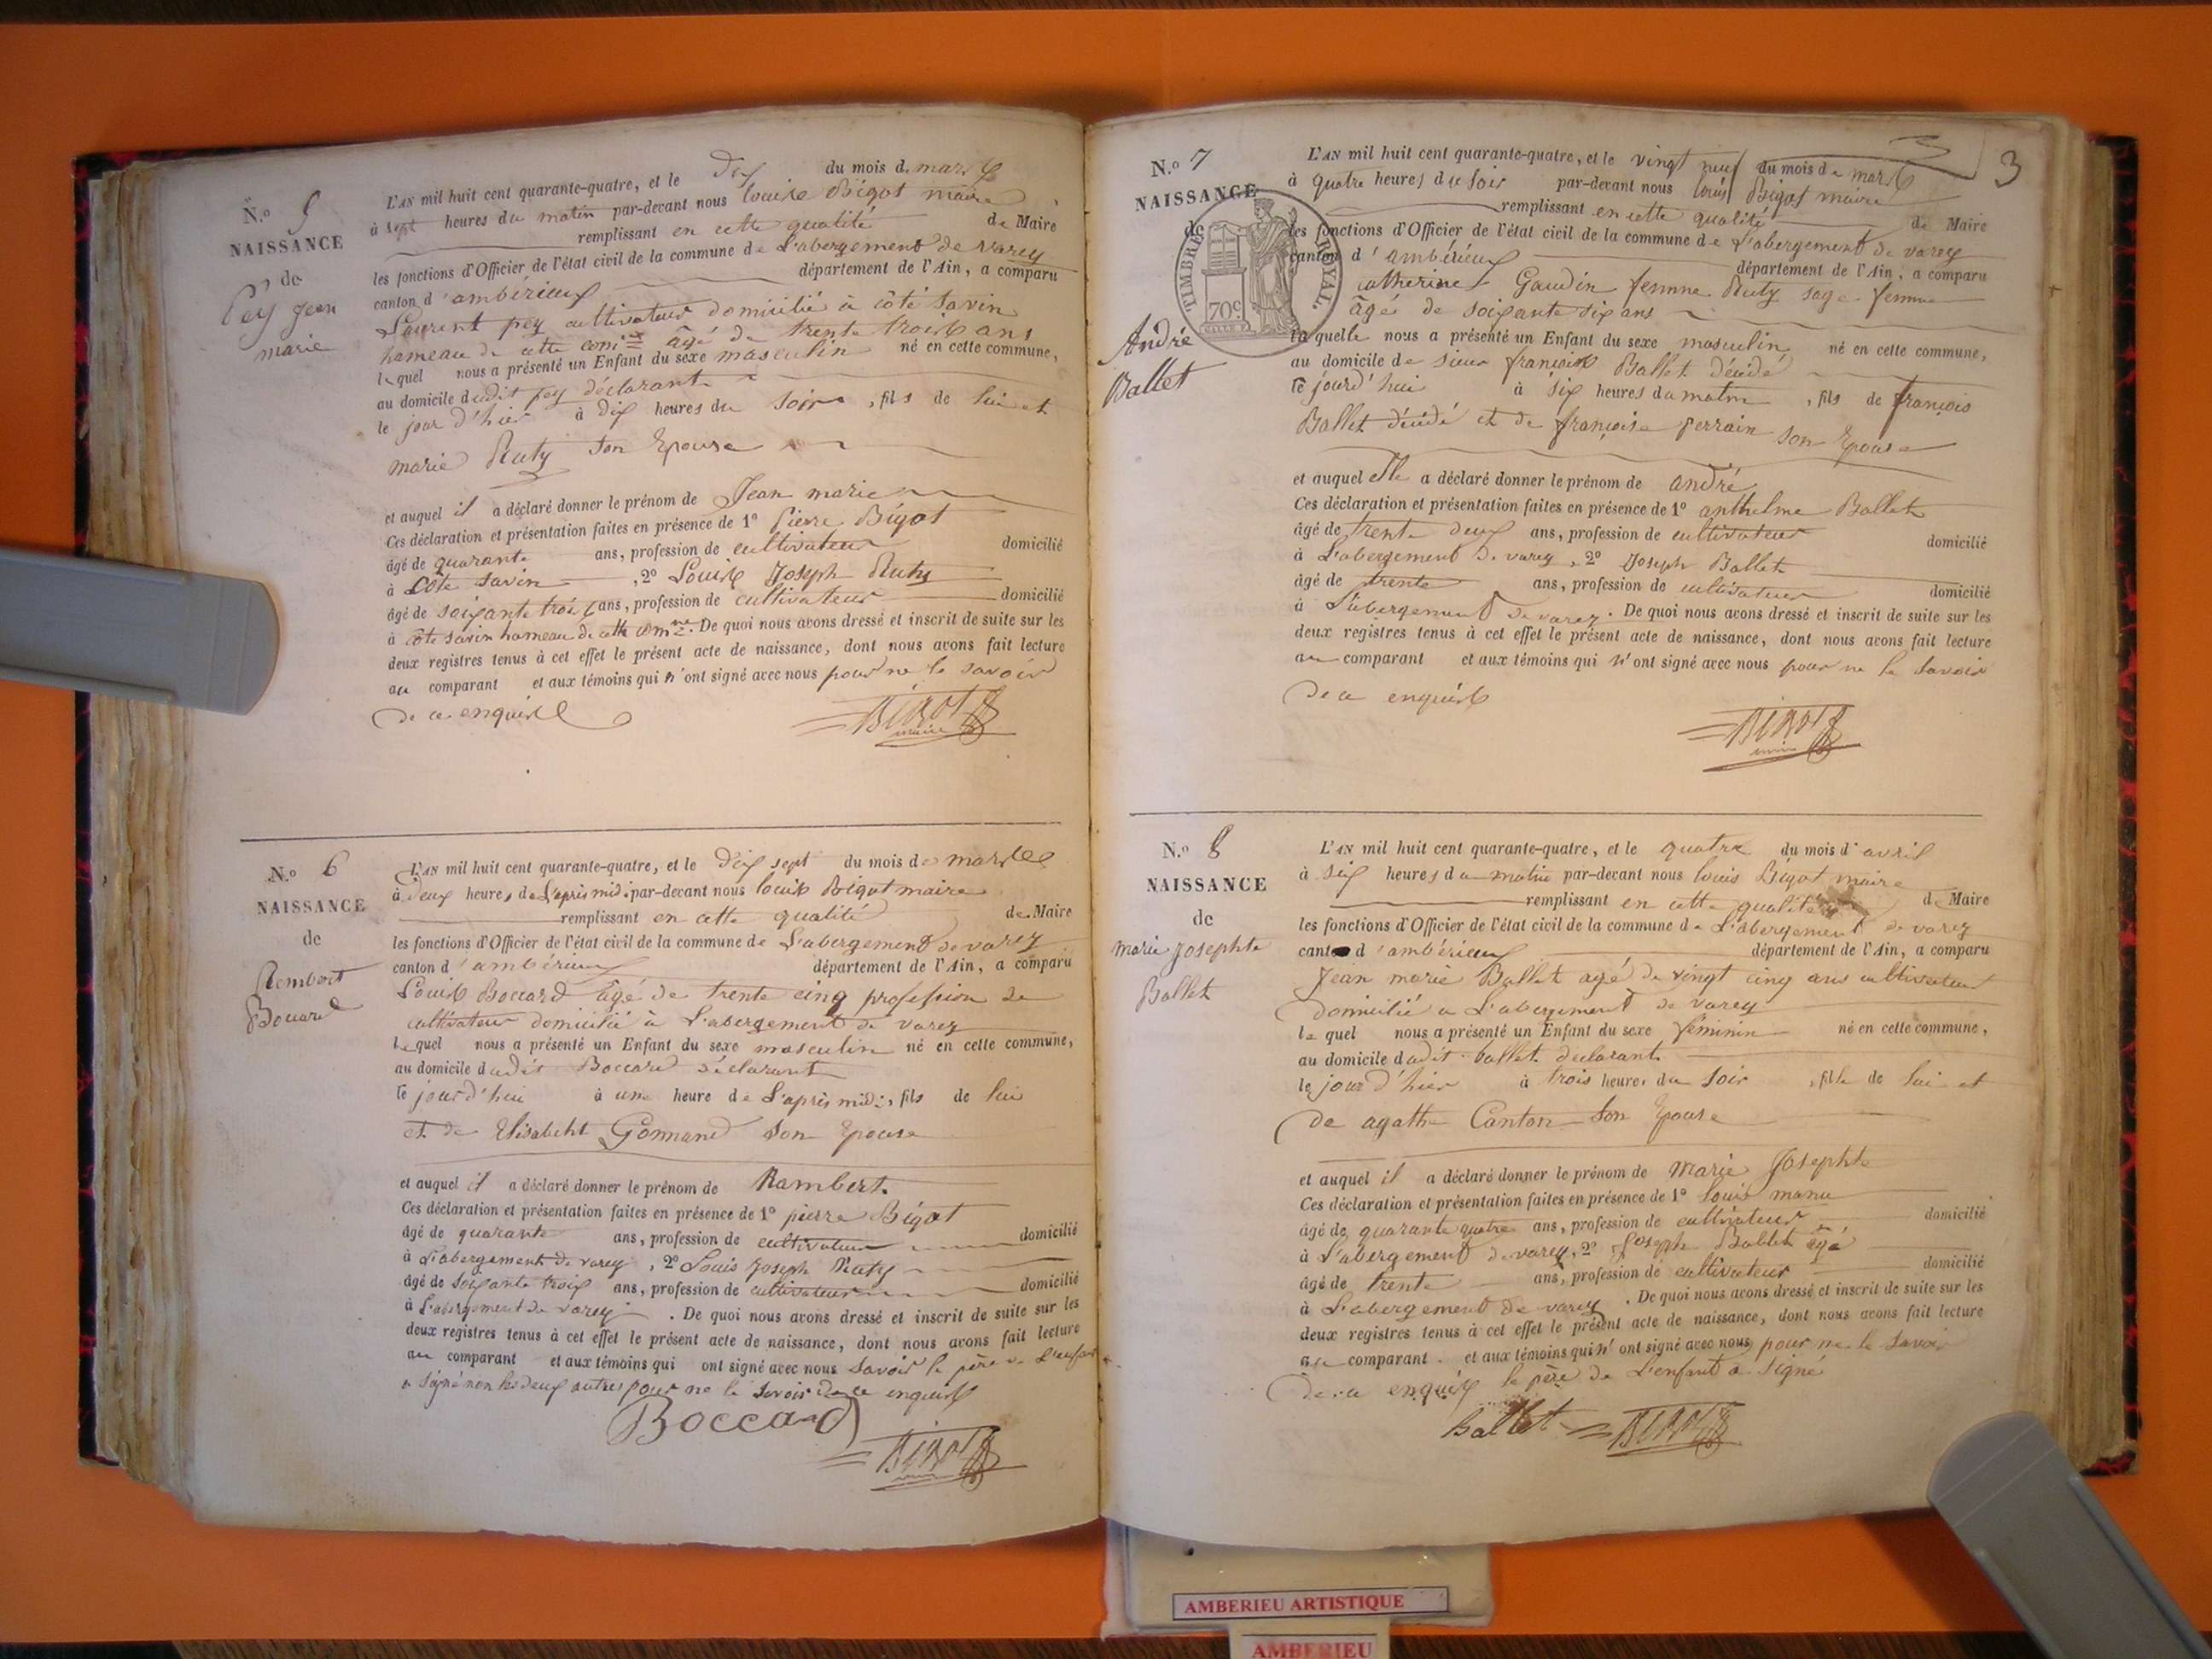 N.o 5
NAISSANCE
de
Pey Jean
marie
L'AN mil huit cent quarante-quatre, et le Dix du mois de mars
à sept heures du matin par-devant nous louise Bigot maire
remplissant en cette qualité de Maire
les fonctions d'Officier de l'état civil de la commune de L'abergement de varey
canton d'ambérieux département de l'Ain, a comparu
Laurent pey cultivateur domicilié à côté Savin
hameau de cette comne âgé de trente trois ans
lequel nous a présenté un Enfant du sexe masculin né en cette commune,
au domicile dudit pey déclarant
le jour d'hier à dix heures du soir, fils de lui et
marie Ruty son Epouse
et auquel il a déclaré donner le prénom de Jean marie
Ces déclaration et présentation faites en présence de 1o Pierre Bigot
âgé de quarante ans, profession de cultivateur domicilié
à Côte Savin, 2o Louis Joseph Ruty
âgé de soixante trois ans, profession de cultivateur domicilié
à côte savin hameau de cette comne. De quoi nous avons dressé et inscrit de suite sur les
deux registres tenus à cet effet le présent acte de naissance, dont nous avons fait lecture
au comparant et aux témoins qui n'ont signé avec nous pour ne le savoir
de ce enquis
BIGOT
maire
N.o 6
NAISSANCE
de
Rembert
Boccard
L'AN mil huit cent quarante-quatre, et le Dix sept du mois de mars
à deux heures de L'après midi par-devant nous louis Bigot maire
remplissant en cette qualité de Maire
les fonctions d'Officier de l'état civil de la commune de L'abergement de varey
canton d'ambérieux département de l'Ain, a comparu
Louis Boccard âgé de trente cinq profession de
cultivateur domicilié à L'abergement de varey
lequel nous a présenté un Enfant du sexe masculin né en cette commune,
au domicile dudit Boccard déclarant
le jourd'hui à une heure de L'après midi, fils de lui
et de Elisabeht Gonnand son Epouse
et auquel il a déclaré donner le prénom de Rambert
Ces déclaration et présentation faites en présence de 1o pierre Bigot
âgé de quarante ans, profession de cultivateur domicilié
à L'abergement de varey, 2o Louis Joseph Ruty
âgé de soixante trois ans, profession de cultivateur domicilié
à L'abergement de varey. De quoi nous avons dressé et inscrit de suite sur les
deux registres tenus à cet effet le présent acte de naissance, dont nous avons fait lecture
au comparant et aux témoins qui ont signé avec nous savoir le père de L'enfant
a signé non les deux autres pour ne le savoir de ce enquis
Boccard
BIGOT
maire
3
N.o 7
NAISSANCE
de
André
Ballet
TIMBRE ROYAL.
70c
L'AN mil huit cent quarante-quatre, et le vingt neuf du mois de mars
à quatre heures du soir par-devant nous louis Bigot maire
remplissant en cette qualité de Maire
les fonctions d'Officier de l'état civil de la commune de L'abergement de varey
canton d'ambérieux département de l'Ain, a comparu
catherine Gaudin femme Ruty sage-femme
âgé de soixante six ans
laquelle nous a présenté un Enfant du sexe masculin né en cette commune,
au domicile de sieur françois Ballet décédé
le jourd'hui à six heures du matin, fils de françois
Ballet décédé et de françoise perrain son Epouse
et auquel elle a déclaré donner le prénom de andré
Ces déclaration et présentation faites en présence de 1o anthelme Ballet
âgé de trente deux ans, profession de cultivateur domicilié
à L'abergement de varey, 2o Joseph Ballet
âgé de trente ans, profession de cultivateur domicilié
à L'abergement de varey. De quoi nous avons dressé et inscrit de suite sur les
deux registres tenus à cet effet le présent acte de naissance, dont nous avons fait lecture
au comparant et aux témoins qui n'ont signé avec nous pour ne le savoir
de ce enquis
BIGOT
maire
N.o 8
NAISSANCE
de
marie Josephte
Ballet
L'AN mil huit cent quarante-quatre, et le quatre du mois d'avril
à six heures du matin par-devant nous louis Bigot maire
remplissant en cette qualité de Maire
les fonctions d'Officier de l'état civil de la commune de L'abergement de varey
canton d'ambérieux département de l'Ain, a comparu
Jean marie Ballet agé de vingt cinq ans cultivateur
domicilié a L'abergement de varey
lequel nous a présenté un Enfant du sexe féminin né en cette commune,
au domicile dudit ballet declarant
le jour d'hier à trois heures du soir, fille de lui et
de agathe Canton son Epouse
et auquel il a déclaré donner le prénom de Marie Josephte
Ces déclaration et présentation faites en présence de 1o louis manu
âgé de quarante quatre ans, profession de cultivateur domicilié
à L'abergement de varey, 2o Joseph Ballet agé
âgé de trente ans, profession de cultivateur domicilié
à L'abergement de varey. De quoi nous avons dressé et inscrit de suite sur les
deux registres tenus à cet effet le présent acte de naissance, dont nous avons fait lecture
au comparant et aux témoins qui n'ont signé avec nous pour ne le savoir
de ce enquis le père de L'enfant a signé
Ballet BIGOT
AMBERIEU ARTISTIQUE
AMBERIEU